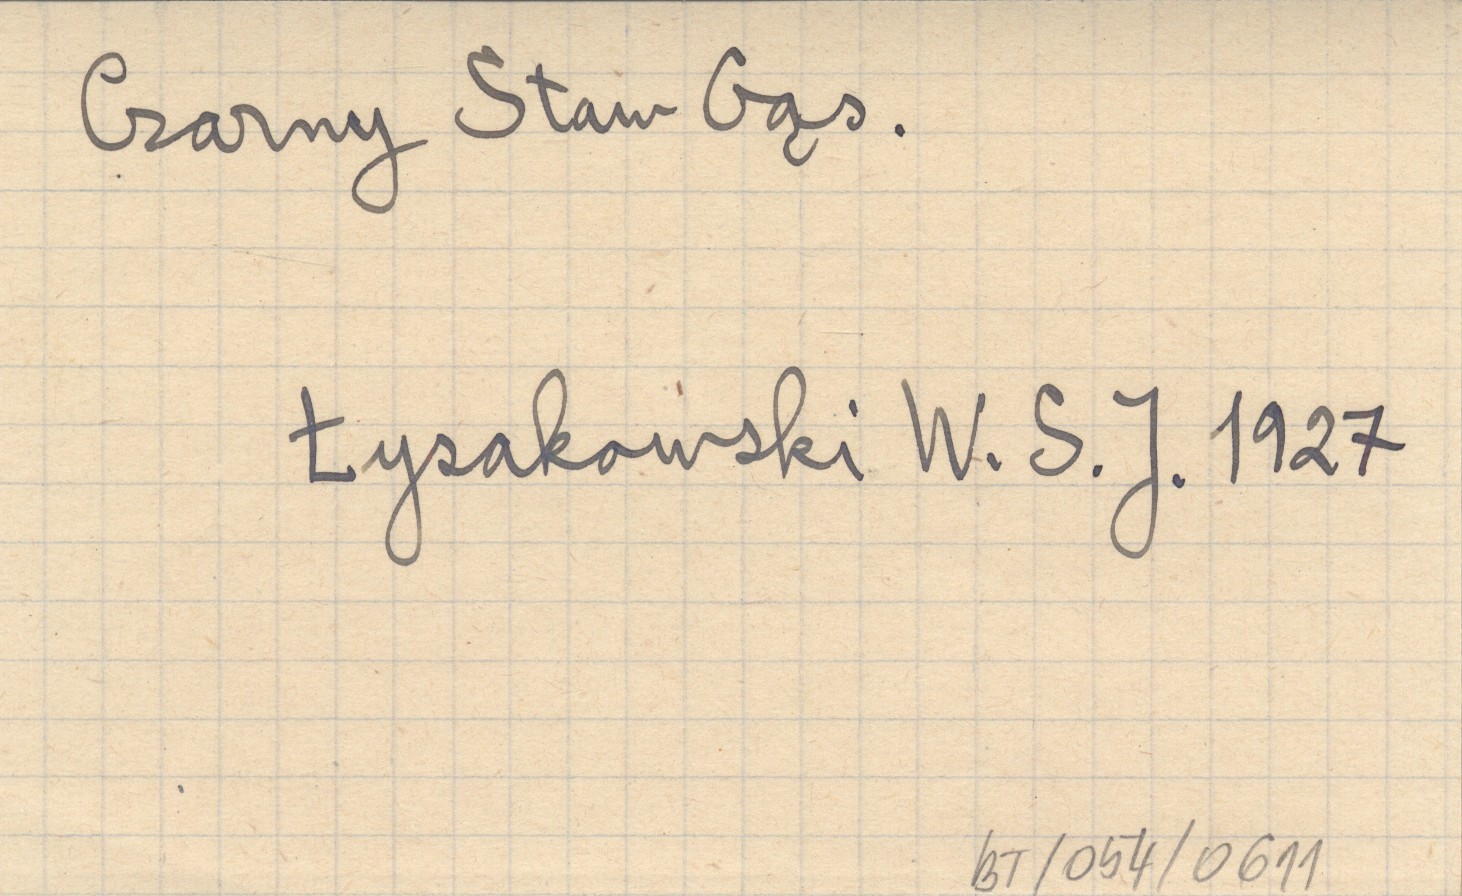 Czarny Staw Gąs.
Łysakowski W. S.J. 1927
BT/054/0611